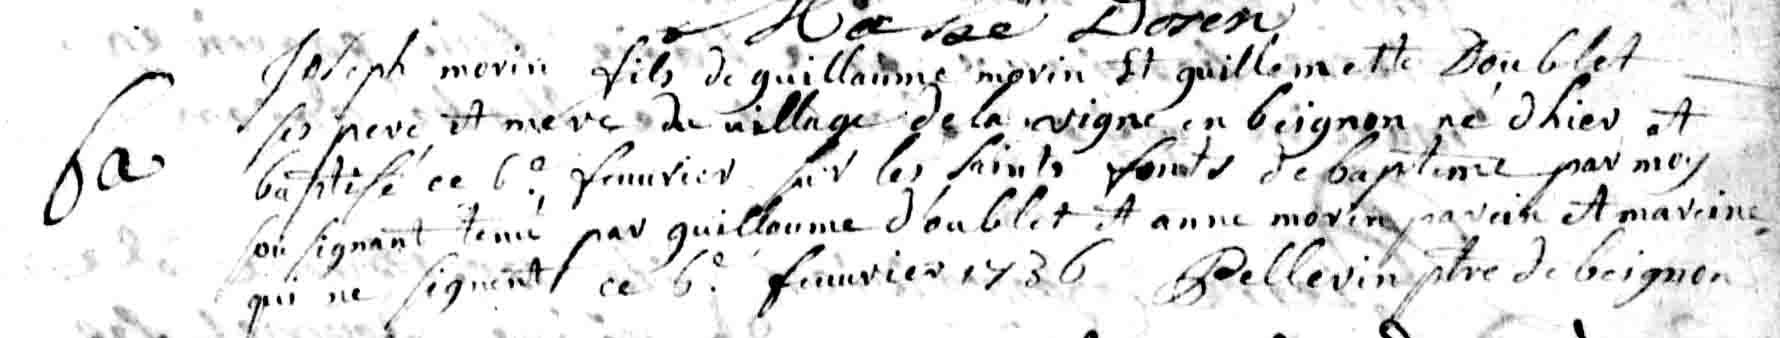 Joseph morin fils de guillaume morin Et guillemette Doublet
ses pere et mere du village de la vigne en beignon né d'hier et
baptisé ce 6e feuurier sur les saints fonts de bapteme par moy
sousignant tenu par guillaume doublet et anne morin parein et mareine
qui ne signent ce 6e feuurier 1736 Pellerin ptre de beignon